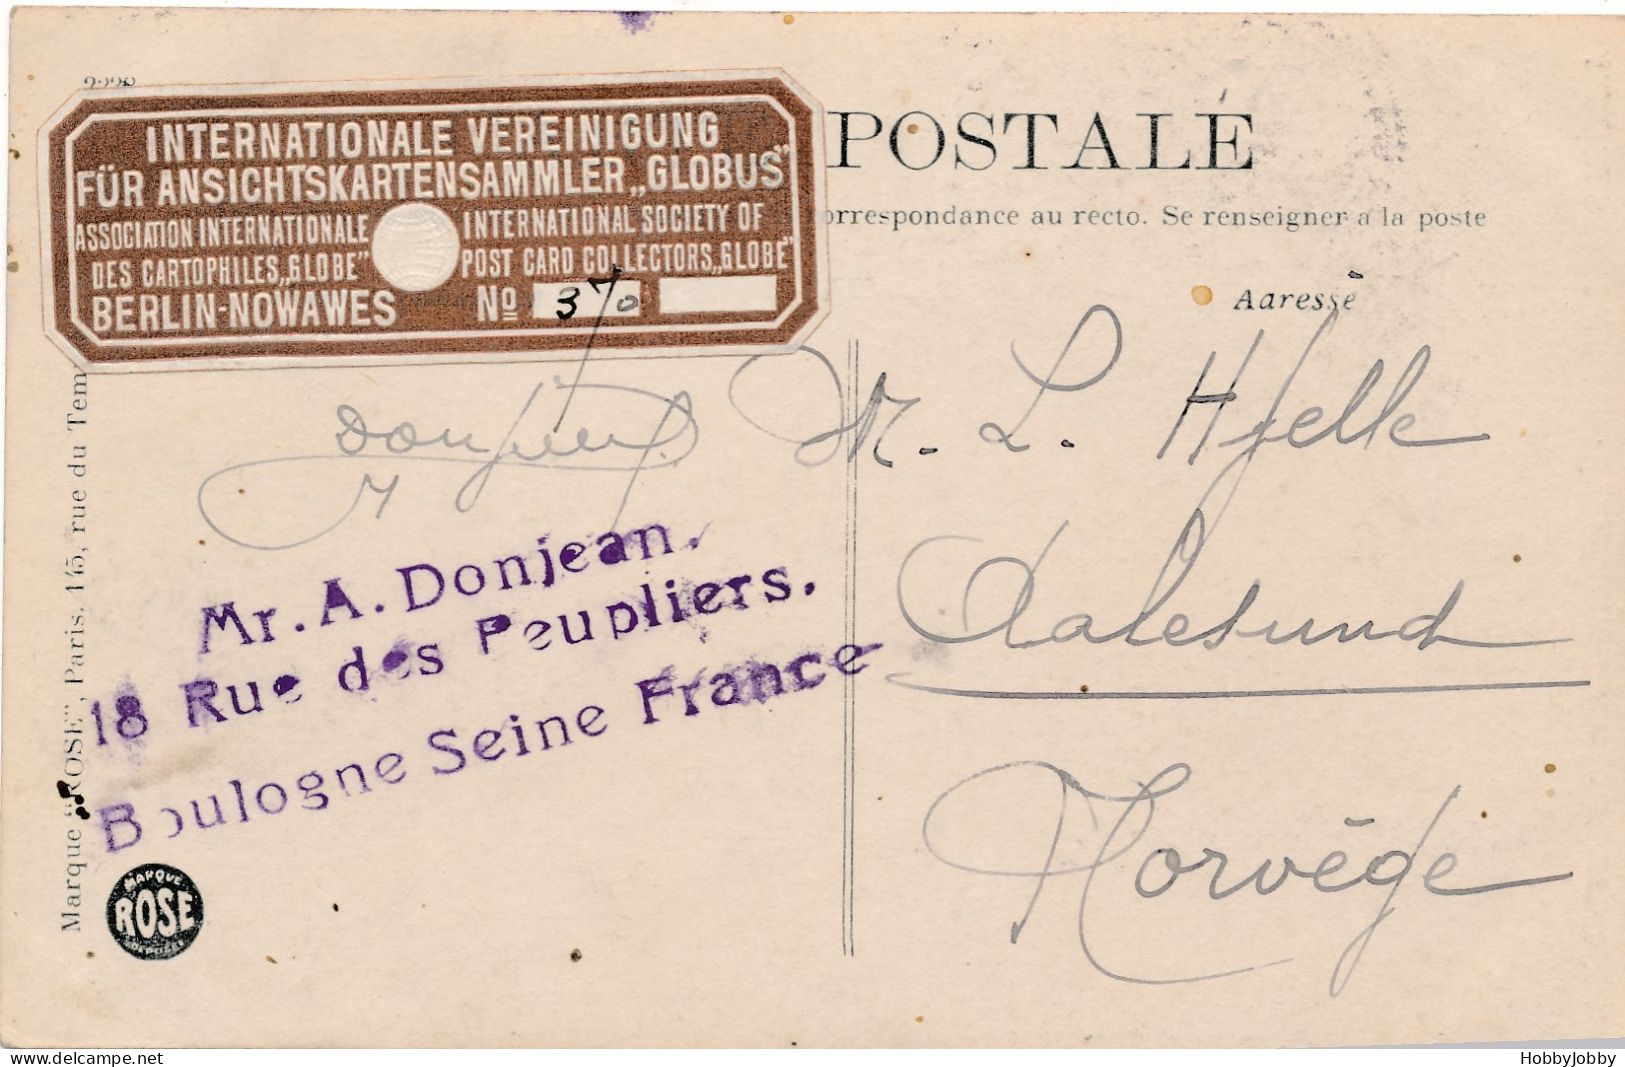 INTERNATIONALE VEREINIGUNG
FÜR ANSICHTSKARTENSAMMLER „GLOBUS“
ASSOCIATION INTERNATIONALE
DES CARTOPHILES „GLOBE“
INTERNATIONAL SOCIETY OF
POST CARD COLLECTORS „GLOBE“
BERLIN-NOWAWES
No 370
POSTALE
orrespondance au recto. Se renseigner a la poste
Adresse
M. L. Hjelle
Aalesund
Norvège
Donjean
Mr. A. Donjean.
18 Rue des Peupliers.
Boulogne Seine France
Marque "ROSE", Paris. 145, rue du Tem
MARQUE
ROSE
HobbyJobby